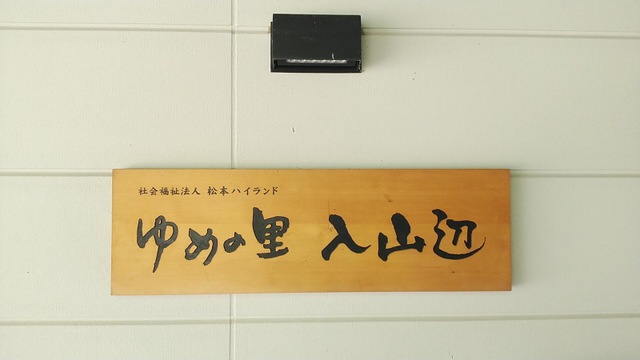 社会福祉法人 松本ハイランド
ゆめの里 入山辺